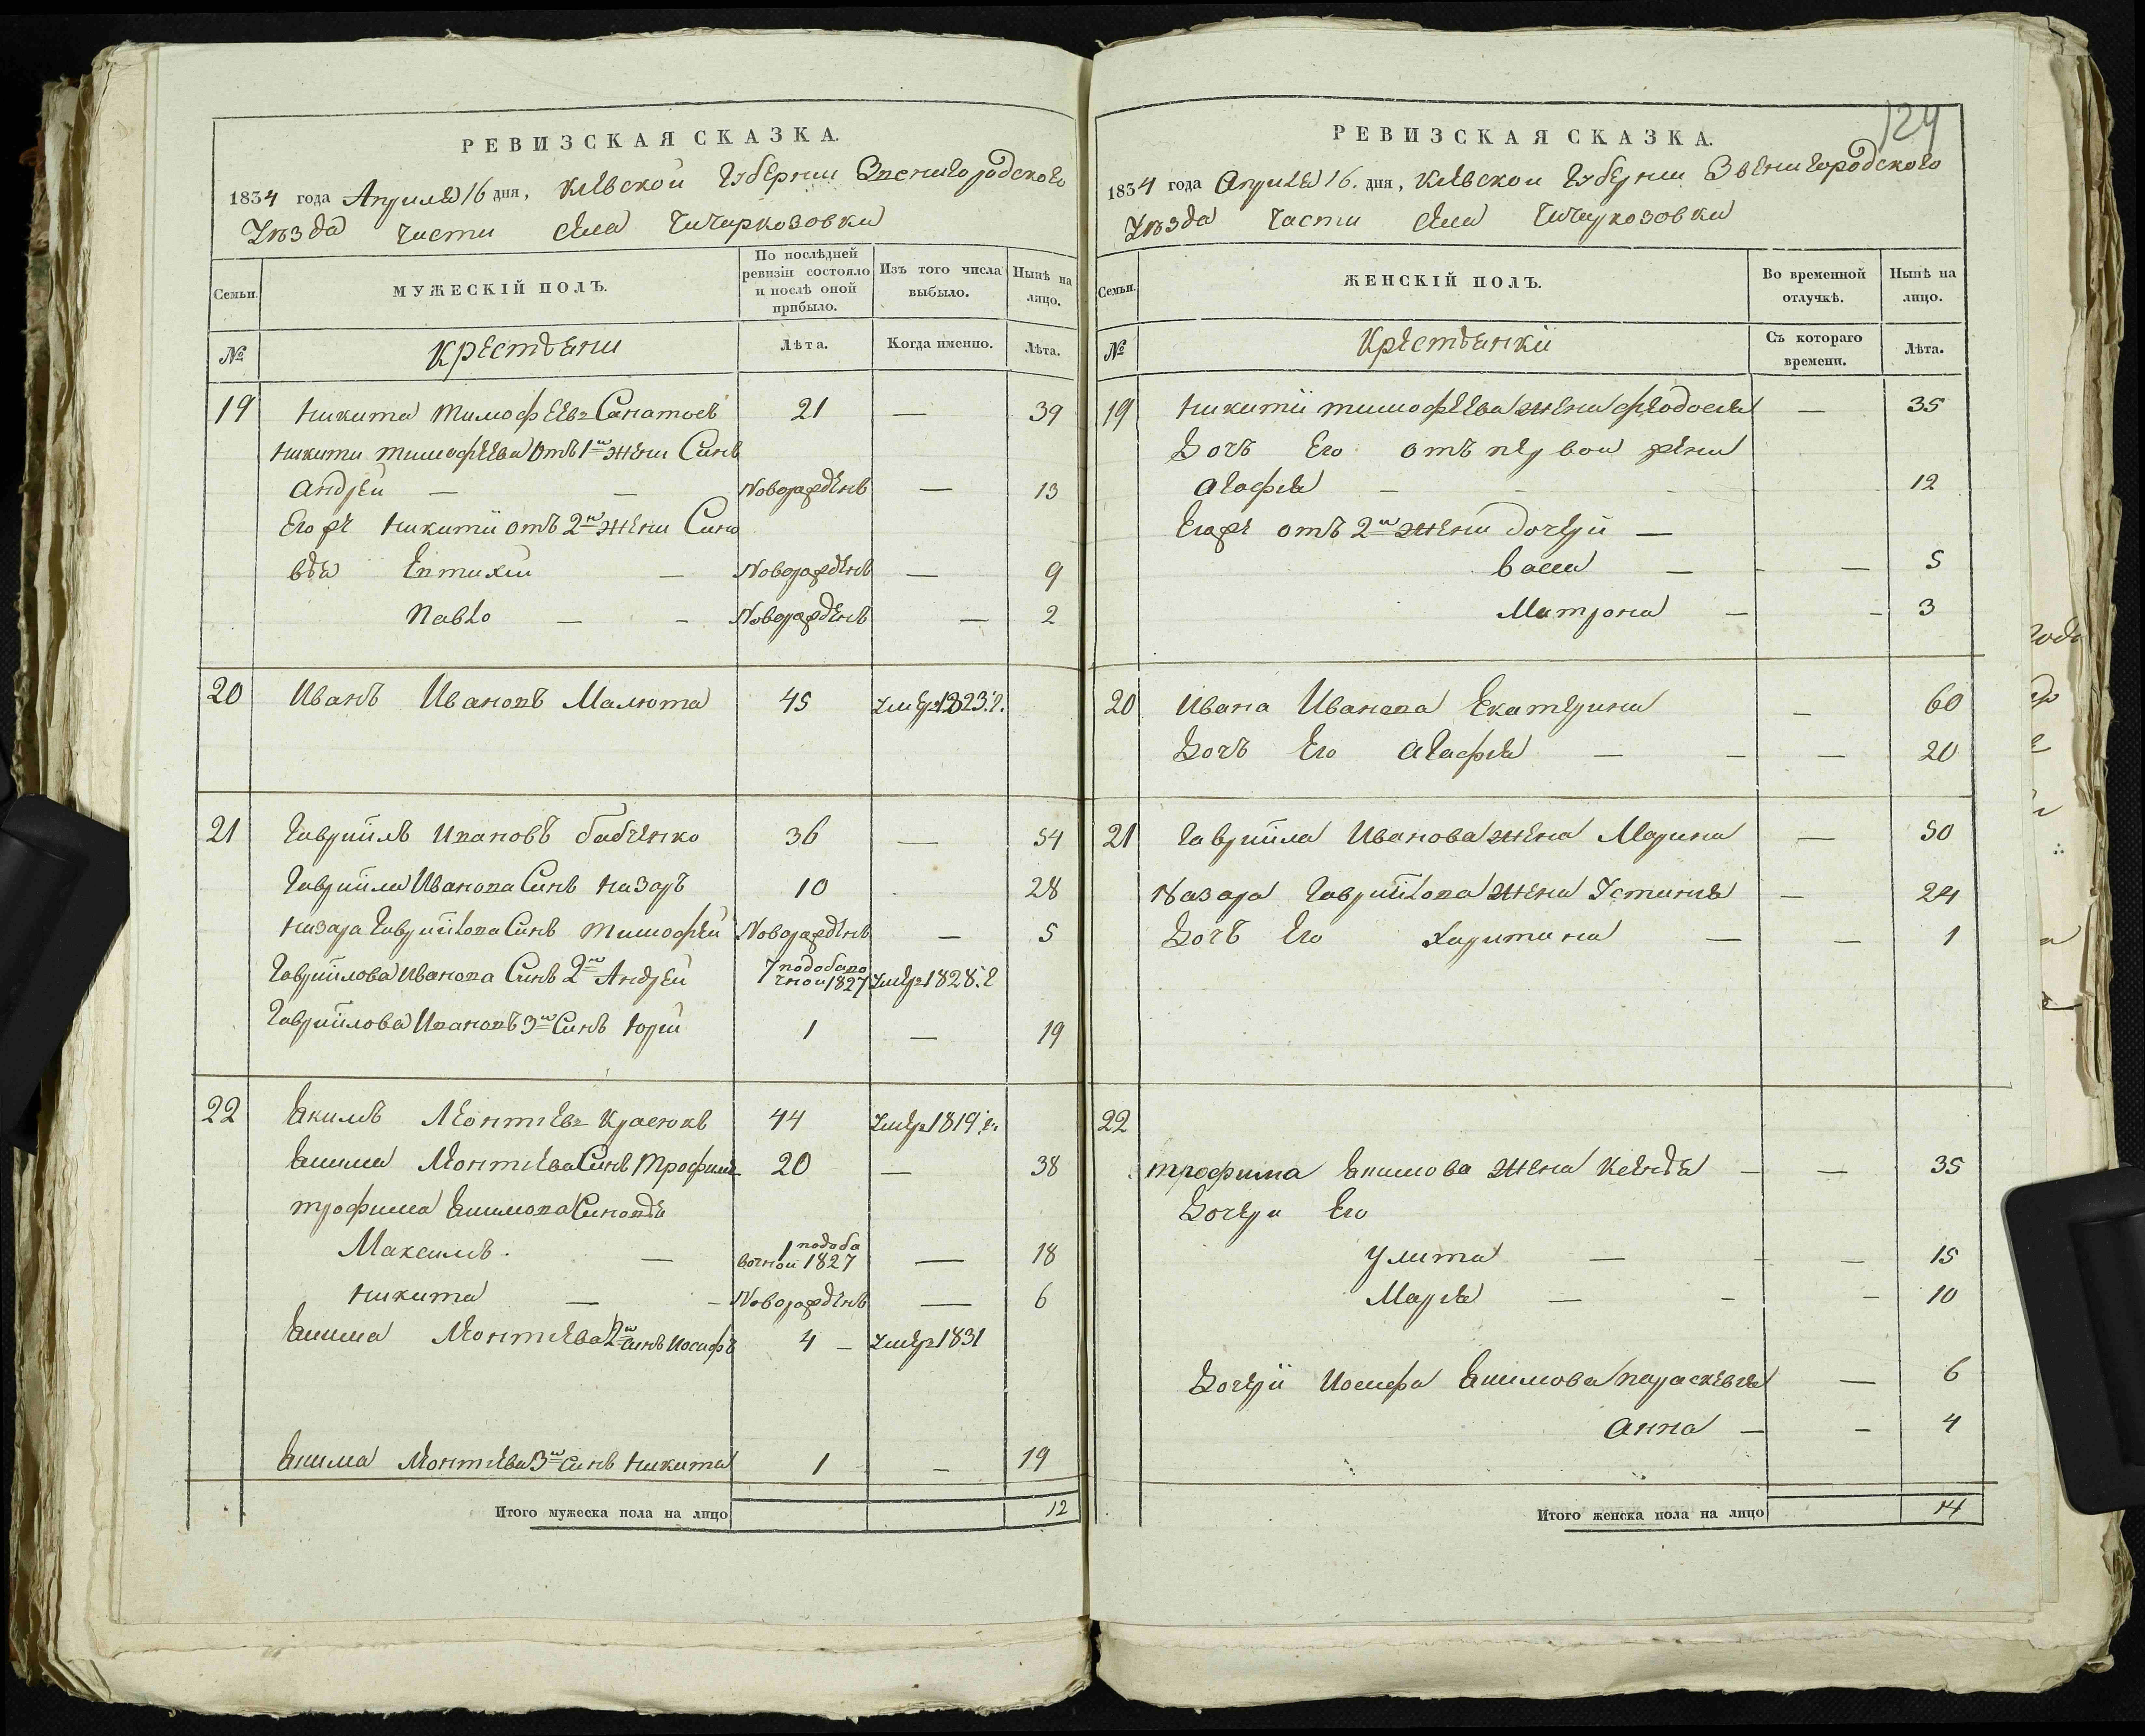 РЕВИЗСКАЯ СКАЗКА.
1834 года Апрıлѧ 16 дня, Кıевской Губернıи Звенигородского
Уѣзда части села Чичиркозовки
Семьи. МУЖЕСКІЙ ПОЛЪ. По послѣдней ревизіи состояло и послѣ оной прибыло. Изъ того числа выбыло. Нынѣ на лицо.
№ Крестьяни Лѣта. Когда именно. Лѣта.
19 Никита Тимофеевъ 21 — 39
Никити Тимофеева отъ 1й жени Синъ
Андрей — — Новорожденъ — 13
Его же Никитіи отъ 2й жени Сино
вья Евтихıй — Новорожденъ — 9
Павло — — Новорожденъ — 2
20 Иванъ Ивановъ Малюта 45 умеръ 1823: г.
21 Гавріилъ Ивановъ Бабченко 36 — 54
Гавріила Иванова Синъ Назаръ 10 28
Назара Гавріилова Синъ Тимофей Новорожденъ — 5
Гавріилова Иванова Синъ 2й Андрей 7 подобаво чной 1827 умеръ 1828: г
Гавріилова Ивановъ 3й Синъ Юрıй 1 — 19
22 Екимъ Леонтıевъ Красюкъ 44 умеръ 1819: г.
Екима Леонтıева Синъ Трофимъ 20 — 38
Трофима Екимова Синовья
Максимъ. — 1 подоба вочной 1827 — 18
Никита — — Новорожденъ — 6
Екима Леонтıева 2й Синъ Иосифъ 4 — умеръ 1831
Екима Леонтıева 3й Синъ Никита 1 — 19
Итого мужеска пола на лицо 12
124
РЕВИЗСКАЯ СКАЗКА.
1834 года Апрıлѧ 16. дня, Кıевской Губернıи Звенигородского
Уѣзда части села Чичиркозовки
Семьи. ЖЕНСКІЙ ПОЛЪ. Во временной отлучкѣ. Нынѣ на лицо.
№ Крестьянкіи Съ котораго времени. Лѣта.
19 Никитіи Тимофеева жена Феодосıя — 35
Дочъ Его отъ первой жени
Агафıя — - - - 12
Егоже отъ 2й жени дочери —
Васса — - — 5
Матрона — - 3
20 Ивана Иванова Екатерина — 60
Дочъ Его Агафıя — — — 20
21 Гавріила Иванова жена Марина — 50
Назара Гавріилова жена Устинıя — 24
Дочъ Его Харитина — — 1
22
Трофима Екимова жена Ксенья — — 35
Дочери Его
Улита — - — 15
Марıя — - - 10
Дочеріи Иосифа Екимова Параскевıя — 6
Анна — - 4
Итого женска пола на лицо 14